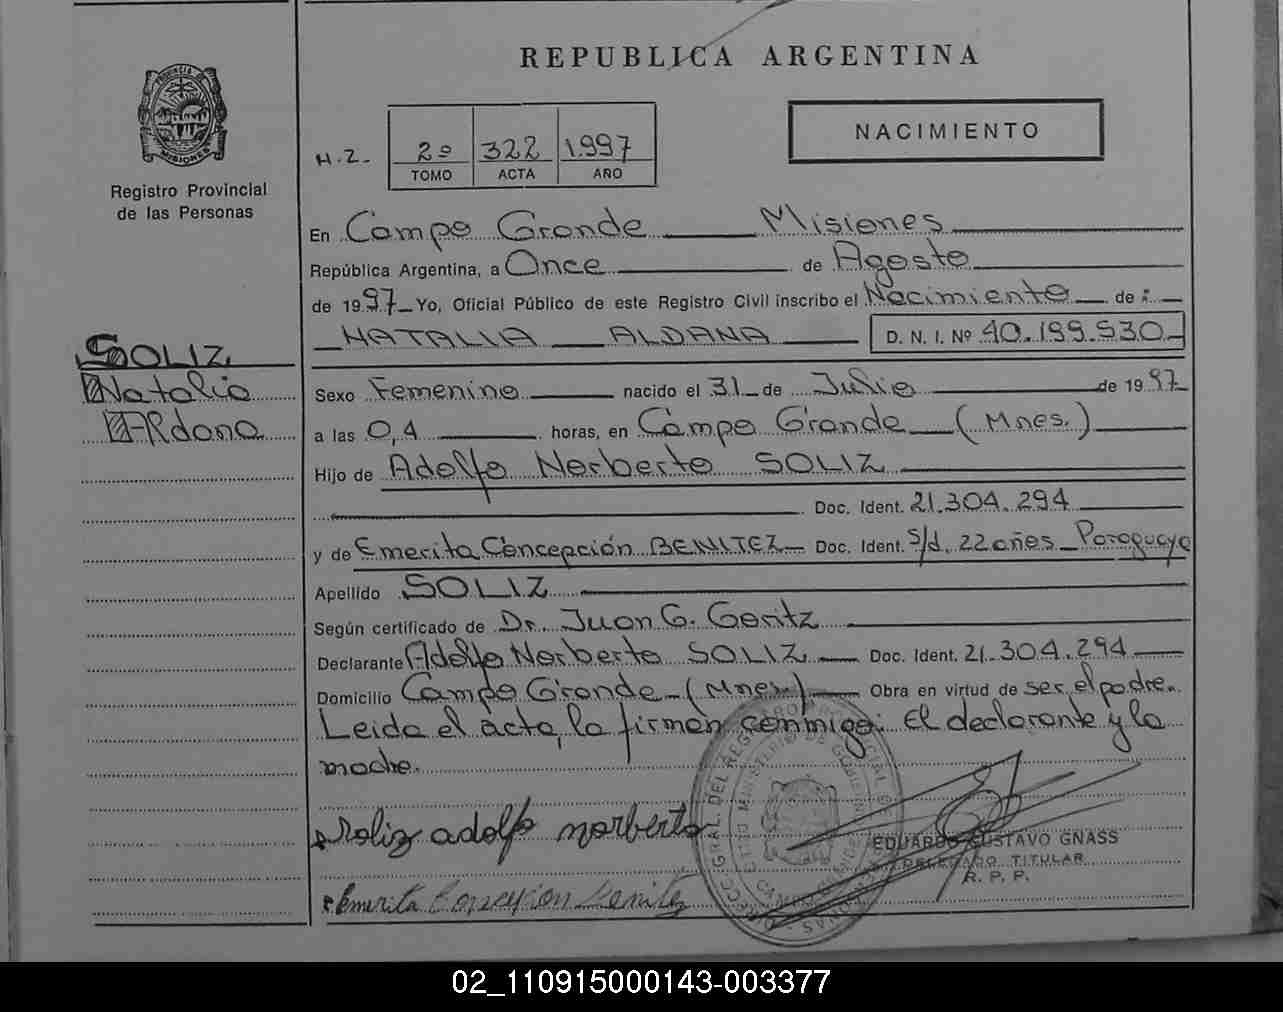 REPUBLICA ARGENTINA
PROVINCIA DE
MISIONES
Registro Provincial
de las Personas
H.Z.- 2º 322 1.997
TOMO ACTA AÑO
NACIMIENTO
En Campo Grande Misiones
República Argentina, a Once de Agosto
de 1997 Yo, Oficial Público de este Registro Civil inscribo el Nacimiento de :
NATALIA ALDANA D. N. I. Nº 40.199.930
SOLIZ
Natalia
Aldana
Sexo Femenino nacido el 31 de Julio de 1997
a las 0,4 horas, en Campo Grande (Mnes.)
Hijo de Adolfo Norberto SOLIZ
Doc. Ident. 21.304.294
y de Emerita Concepción BENITEZ Doc. Ident. s/d. 22 años Paraguaya
Apellido SOLIZ
Según certificado de Dr. Juan G. Goritz
Declarante Adolfo Norberto SOLIZ Doc. Ident. 21.304.294
Domicilio Campo Grande (Mnes) Obra en virtud de ser el padre.
Leida el acta, la firman conmigo: El declarante y la
madre.
Soliz adolfo norberto
EDUARDO GUSTAVO GNASS
DELEGADO TITULAR
R. P. P.
Emerita Concepcion Benitez
02_110915000143-003377